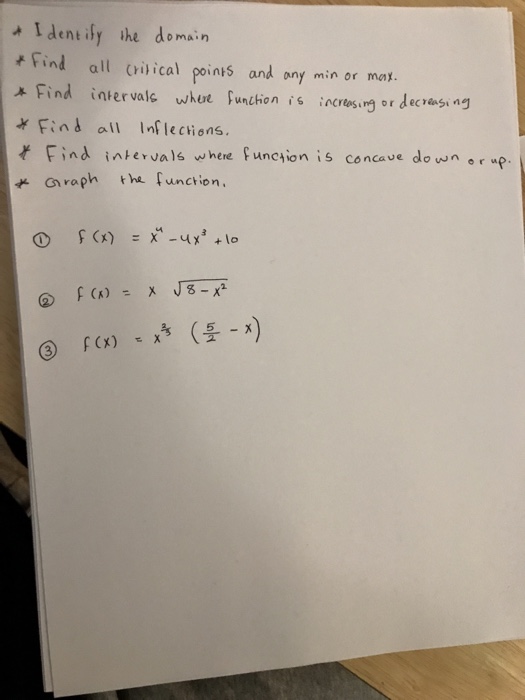 * Identify the domain
* Find all critical points and any min or max.
* Find intervals where function is increasing or decreasing
* Find all Inflections.
* Find intervals where function is concave down or up.
* Graph the function.
① f(x) = x⁴ - 4x³ + 10
② f(x) = x √(8 - x²)
③ f(x) = x^(2/3) (5/2 - x)